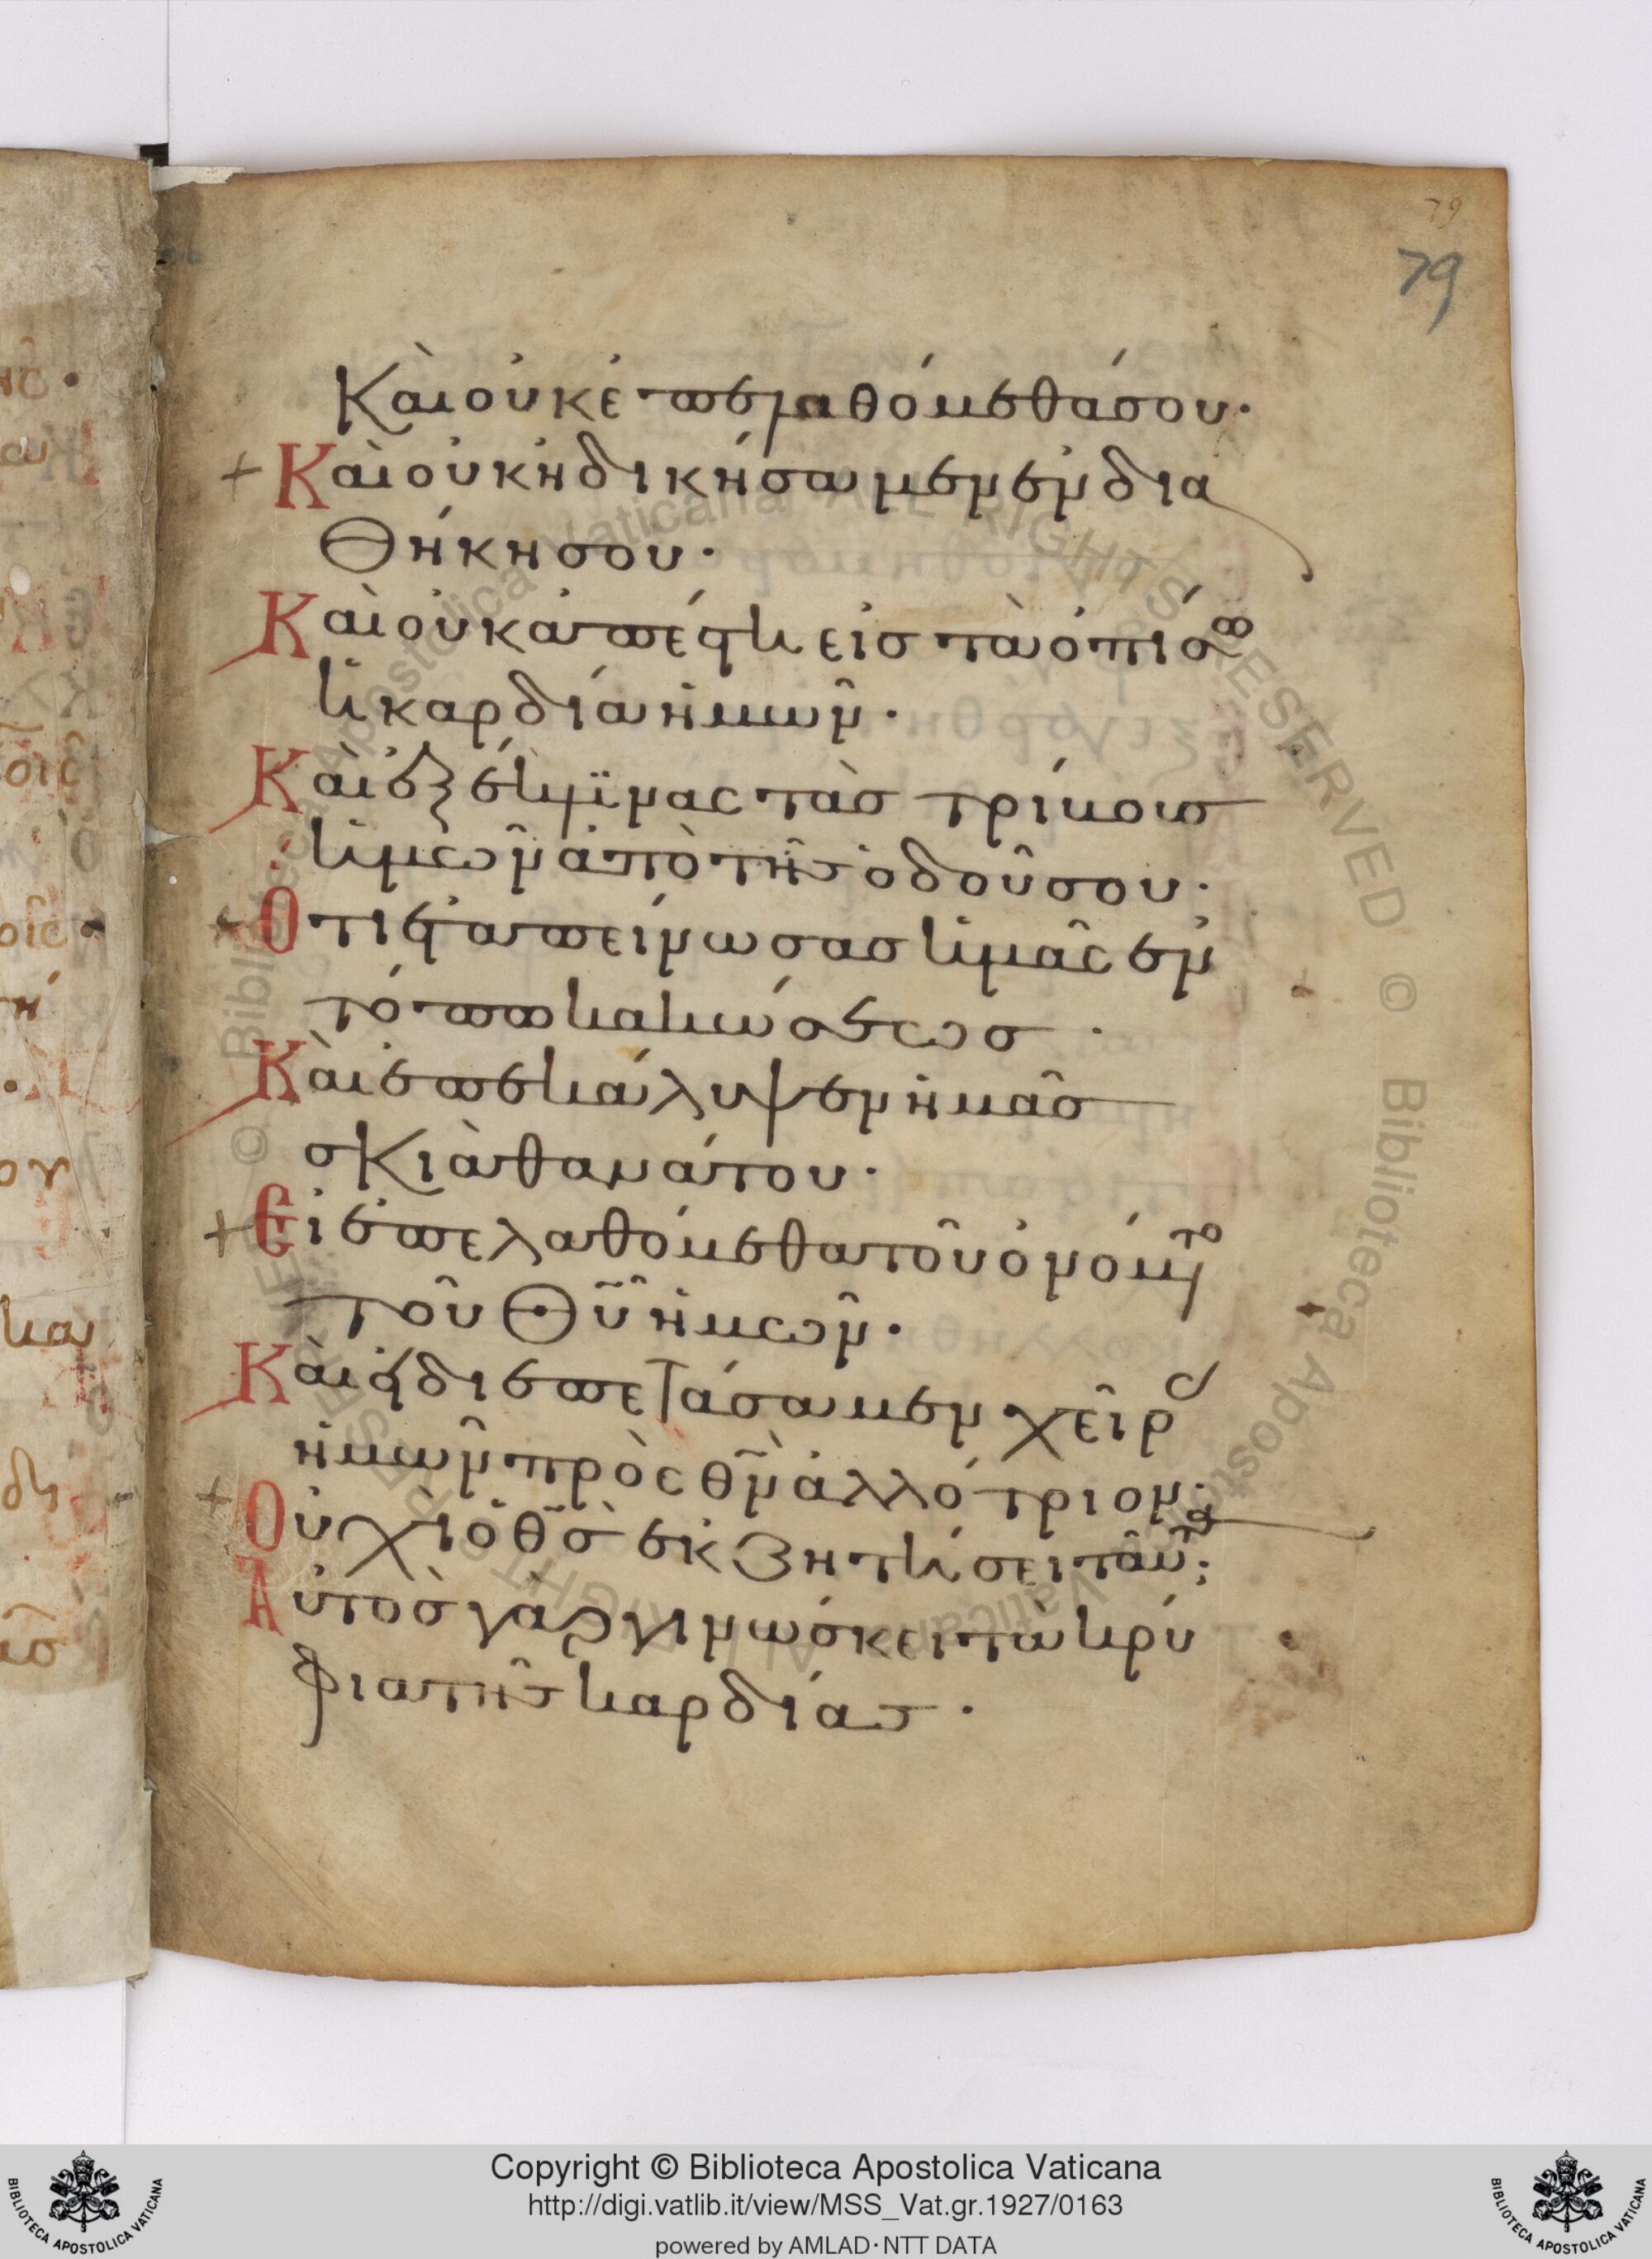 79
79
Καὶ οὐκ ἐπελαθόμεθά σου·
+ Καὶ οὐκ ἠδικήσαμεν ἐν δια
θήκη σου·
Καὶ οὐκ ἀπέστη εἰς τὰ ὀπίσω
ἡ καρδία ἡμῶν·
Καὶ ἐξέκλινας τὰς τρίβους
ἡμῶν ἀπὸ τῆς ὁδοῦ σου·
+ Ὅτι ἐταπείνωσας ἡμᾶς ἐν
τόπω κακώσεως ·
Καὶ ἐπεκάλυψεν ἡμᾶς
σκιὰ θανάτου·
+ Εἰ ἐπελαθόμεθα τοῦ ὀνόματο
τοῦ θῦ ἡμῶν·
Καὶ εἰ διεπετάσαμεν χεῖρας
ἡμῶν πρὸς θν ἀλλότριον·
+ Οὐχὶ ὁ θς ἐκζητήσει ταῦτα;
Αὐτὸς γὰρ γινώσκει τὰ κρύ
φια τῆς καρδίας ·
Copyright © Biblioteca Apostolica Vaticana
http://digi.vatlib.it/view/MSS_Vat.gr.1927/0163
powered by AMLAD·NTT DATA
BIBLIOTECA APOSTOLICA VATICANA
BIBLIOTECA APOSTOLICA VATICANA